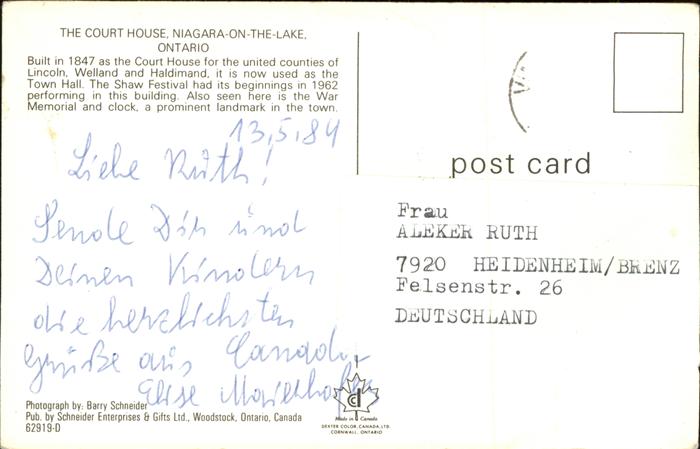 THE COURT HOUSE, NIAGARA-ON-THE-LAKE,
ONTARIO
Built in 1847 as the Court House for the united counties of
Lincoln, Welland and Haldimand, it is now used as the
Town Hall. The Shaw Festival had its beginnings in 1962
performing in this building. Also seen here is the War
Memorial and clock, a prominent landmark in the town.
13,5,84
Liebe Ruth!
Sende Dir und
Deinen Kindern
die herzlichsten
Grüße aus Canada
Elise
Photograph by: Barry Schneider
Pub. by Schneider Enterprises & Gifts Ltd., Woodstock, Ontario, Canada
62919-D
Made in Canada
DEXTER COLOR, CANADA, LTD.
CORNWALL, ONTARIO
post card
Frau
ALEKER RUTH
7920 HEIDENHEIM/BRENZ
Felsenstr. 26
DEUTSCHLAND